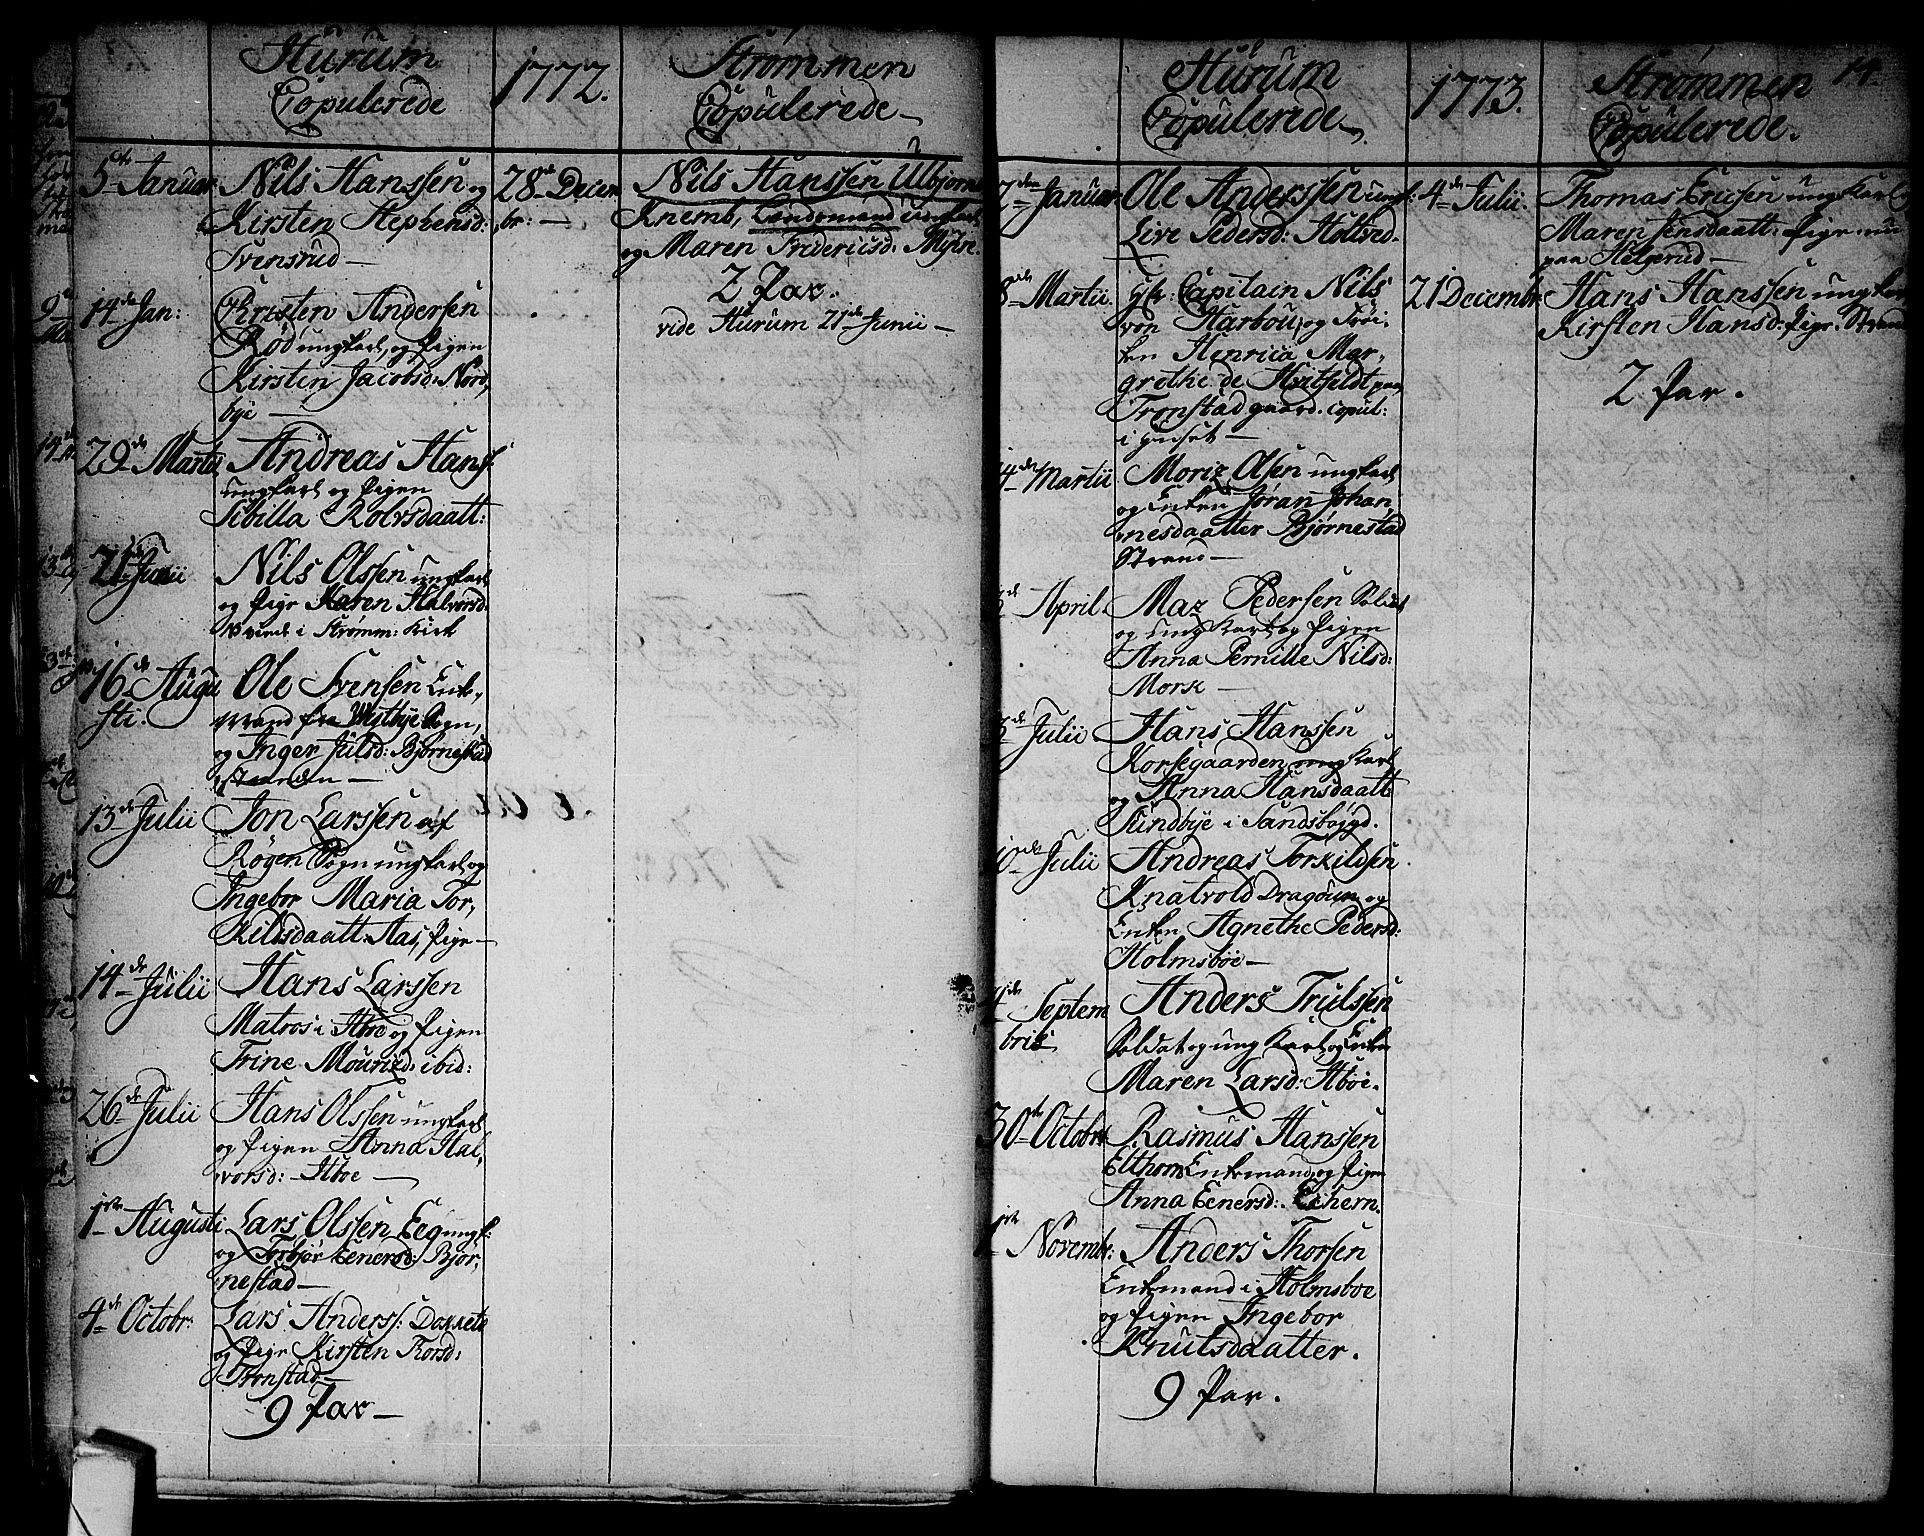 Hurum
Copulerede
1772.
Strømmen
Copulerede
5te Januar
Nils Hanssen og
Kirsten Stephensd:
Svensrud
14de Jan:
Christen Andersen
Rød ungkarl, og Pigen
Kirsten Jacobsd: Nord,
bye
29de Martii
Andreas Hans:
ungkarl og Pigen
Sibilla Rolvsdaatt:
21de Junii
Nils Olssen ungkarl
og Pige Karen Halvorsd:
i Strømm: Kirk
16de Augu
sti.
Ole Svensen Enke,
mand fra Westbye Sogn,
og Inger Juls d: Bjørnestad
stranden
13de Julii
Jon Larssen af
Røgen Sogn ungkarl og
Ingebor Maria Tor,
kildsdaatt: Aas, Pige
14de Julii
Hans Larssen
Matros i og Pigen
Trine Mouriz d: ibid:
26de Julii
Hans Olssen ungkarl
og Pigen Anna Hal,
vorsd:
1ste Augusti
Lars Olssen Eeg ungk:
og Torbjør Eenersd: Bjør,
nestad
4de Octobr:
Lars Anderss:
og Pige Kirsten Torsd:
Tronstad
9 Par
28de Decem
br:
Nils Hanssen Ulbjørn
Knemb, Landsmand ungkarl
og Maren Fridericsd: Myhre.
2 Par.
vide Hurum 21de Junii
Hurum
Copulerede
1773.
Strømmen
Copulerede.
14.
2den Januar
Ole Anderssen ungk:
Live Pedersd: Holtved.
8de Martii
Hr: Capitain Nils
von Harbou, og Frøi,
ken Henrica Mar,
grethe de Hvitfeldt paa
Tronstad gaard. copul:
i Huset
4de Martii
Moriz Olsen ungkarl
og Enken Jøran Johan,
nesdaatter Bjørnestad
Strand
April.
Maz Pedersen Soldat
og ung Karl og Pigen
Anna Pernille Nilsd:
Morsk
Julii
Hans Hanssen
Korsegaarden ung Karl
og Anna Hansdaatt:
Sundbye i Sandsbøygd.
10de Julii
Andreas Torkildsen
Knatvold Dragoun og
Enken Agnethe Pedersd:
Holmsboe
Septem
bris
Anders Trulssen
Soldat og ung Karl og Enken
Maren Larsd:
30te Octobr:
Rasmus Hanssen
Elthorn Enkemand og Pigen
Anna Eenersd: Echern.
1ste Novembr:
Anders Thorsen
Enkemand i Holmsboe
og Pigen Ingebor
Knutsdaatter.
9 Par.
4de Julii.
Thomas Ericsen ungkarl
Maren Jensdaatt: Pige nu
paa Helgerud
21 Decembr
Hans Hanssen ungkarl
Kirsten Hansd: Pige. Strand
2 Par.